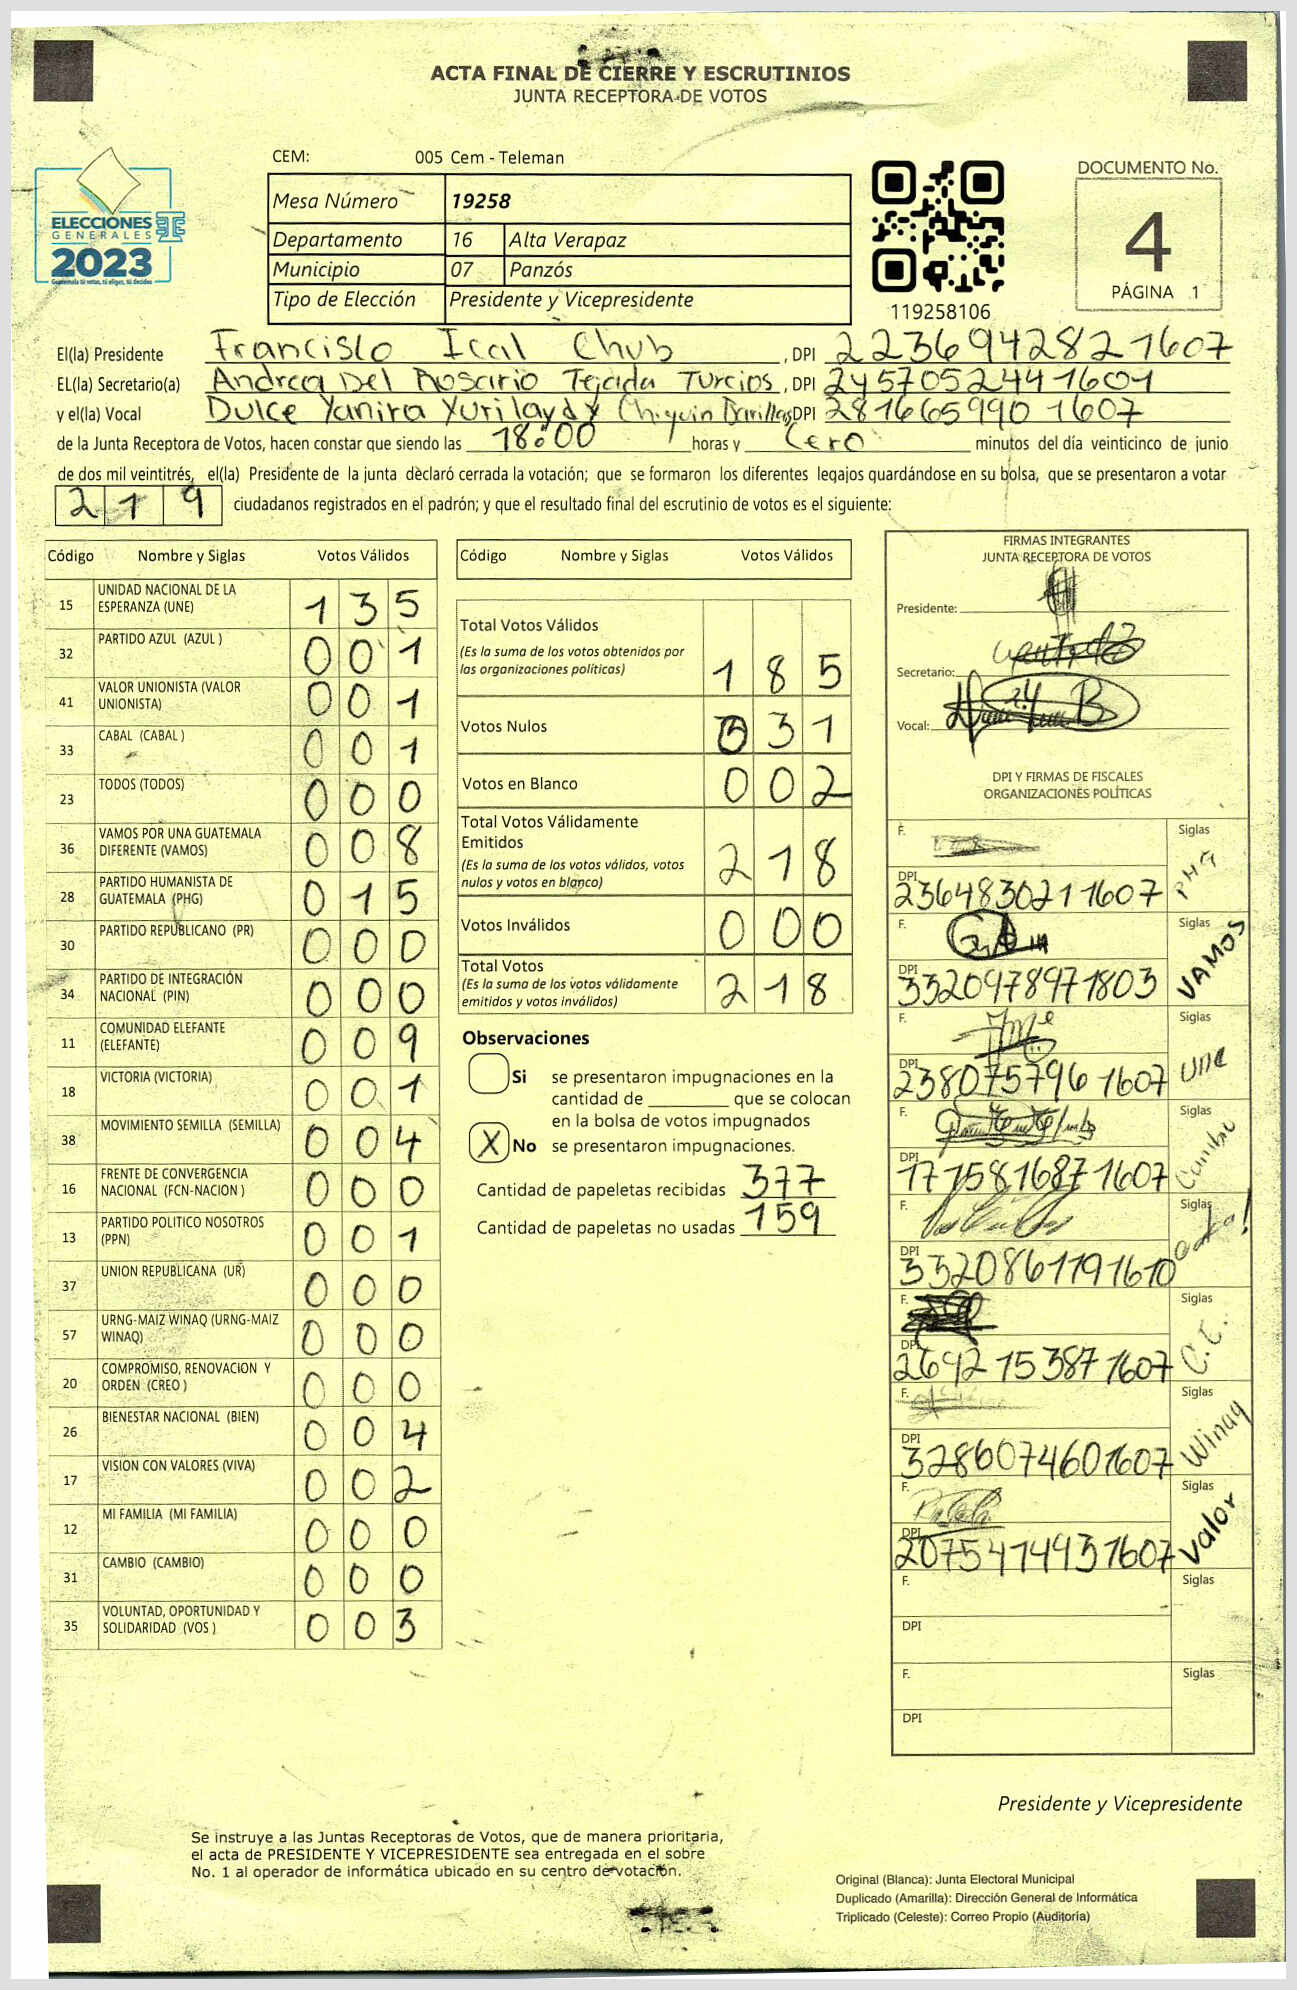 ACTA FINAL DE CIERRE Y ESCRUTINIOS
JUNTA RECEPTORA DE VOTOS
CEM: 005 Cem - Teleman
Mesa Número 19258
Departamento 16 Alta Verapaz
Municipio 07 Panzós
Tipo de Elección Presidente y Vicepresidente
ELECCIONES
GENERALES
2023
Guatemala tú votas, tú eliges, tú decides
119258106
DOCUMENTO No.
4
PÁGINA 1
El(la) Presidente Francislo Ical Chub , DPI 2236942821607
EL(la) Secretario(a) Andrea Del Rosario Tejada Turcios , DPI 2457052441601
y el(la) Vocal Dulce Yanira Yurilaydy Chiquin Barillas DPI 2816659901607
de la Junta Receptora de Votos, hacen constar que siendo las 18:00 horas y Cero minutos del día veinticinco de junio
de dos mil veintitrés, el(la) Presidente de la junta declaró cerrada la votación; que se formaron los diferentes legajos guardándose en su bolsa, que se presentaron a votar
219 ciudadanos registrados en el padrón; y que el resultado final del escrutinio de votos es el siguiente:
Código Nombre y Siglas Votos Válidos
15 UNIDAD NACIONAL DE LA ESPERANZA (UNE) 135
32 PARTIDO AZUL (AZUL ) 001
41 VALOR UNIONISTA (VALOR UNIONISTA) 001
33 CABAL (CABAL ) 001
23 TODOS (TODOS) 000
36 VAMOS POR UNA GUATEMALA DIFERENTE (VAMOS) 008
28 PARTIDO HUMANISTA DE GUATEMALA (PHG) 015
30 PARTIDO REPUBLICANO (PR) 000
34 PARTIDO DE INTEGRACIÓN NACIONAL (PIN) 000
11 COMUNIDAD ELEFANTE (ELEFANTE) 009
18 VICTORIA (VICTORIA) 001
38 MOVIMIENTO SEMILLA (SEMILLA) 004
16 FRENTE DE CONVERGENCIA NACIONAL (FCN-NACION ) 000
13 PARTIDO POLITICO NOSOTROS (PPN) 001
37 UNION REPUBLICANA (UR) 000
57 URNG-MAIZ WINAQ (URNG-MAIZ WINAQ) 000
20 COMPROMISO, RENOVACION Y ORDEN (CREO ) 000
26 BIENESTAR NACIONAL (BIEN) 004
17 VISION CON VALORES (VIVA) 002
12 MI FAMILIA (MI FAMILIA) 000
31 CAMBIO (CAMBIO) 000
35 VOLUNTAD, OPORTUNIDAD Y SOLIDARIDAD (VOS ) 003
Código Nombre y Siglas Votos Válidos
Total Votos Válidos
(Es la suma de los votos obtenidos por
las organizaciones políticas) 185
Votos Nulos 031
Votos en Blanco 002
Total Votos Válidamente
Emitidos
(Es la suma de los votos válidos, votos
nulos y votos en blanco) 218
Votos Inválidos 000
Total Votos
(Es la suma de los votos válidamente
emitidos y votos inválidos) 218
Observaciones
Si se presentaron impugnaciones en la
cantidad de ________ que se colocan
en la bolsa de votos impugnados
X No se presentaron impugnaciones.
Cantidad de papeletas recibidas 377
Cantidad de papeletas no usadas 159
FIRMAS INTEGRANTES
JUNTA RECEPTORA DE VOTOS
Presidente:
Secretario:
Vocal:
DPI Y FIRMAS DE FISCALES
ORGANIZACIONES POLÍTICAS
F. Siglas PHG
DPI 2364830211607
F. Siglas VAMOS
DPI 3320978971803
F. Siglas Une
DPI 2380757961607
F. Siglas Cambio
DPI 17715816871607
F. Siglas
DPI 3320861191610
F. Siglas C.C.
DPI 2692153871607
F. Siglas Winaq
DPI 3286074601607
F. Siglas Valor
DPI 2075414931607
F. Siglas
DPI
F. Siglas
DPI
Presidente y Vicepresidente
Se instruye a las Juntas Receptoras de Votos, que de manera prioritaria,
el acta de PRESIDENTE Y VICEPRESIDENTE sea entregada en el sobre
No. 1 al operador de informática ubicado en su centro de votación.
Original (Blanca): Junta Electoral Municipal
Duplicado (Amarilla): Dirección General de Informática
Triplicado (Celeste): Correo Propio (Auditoría)